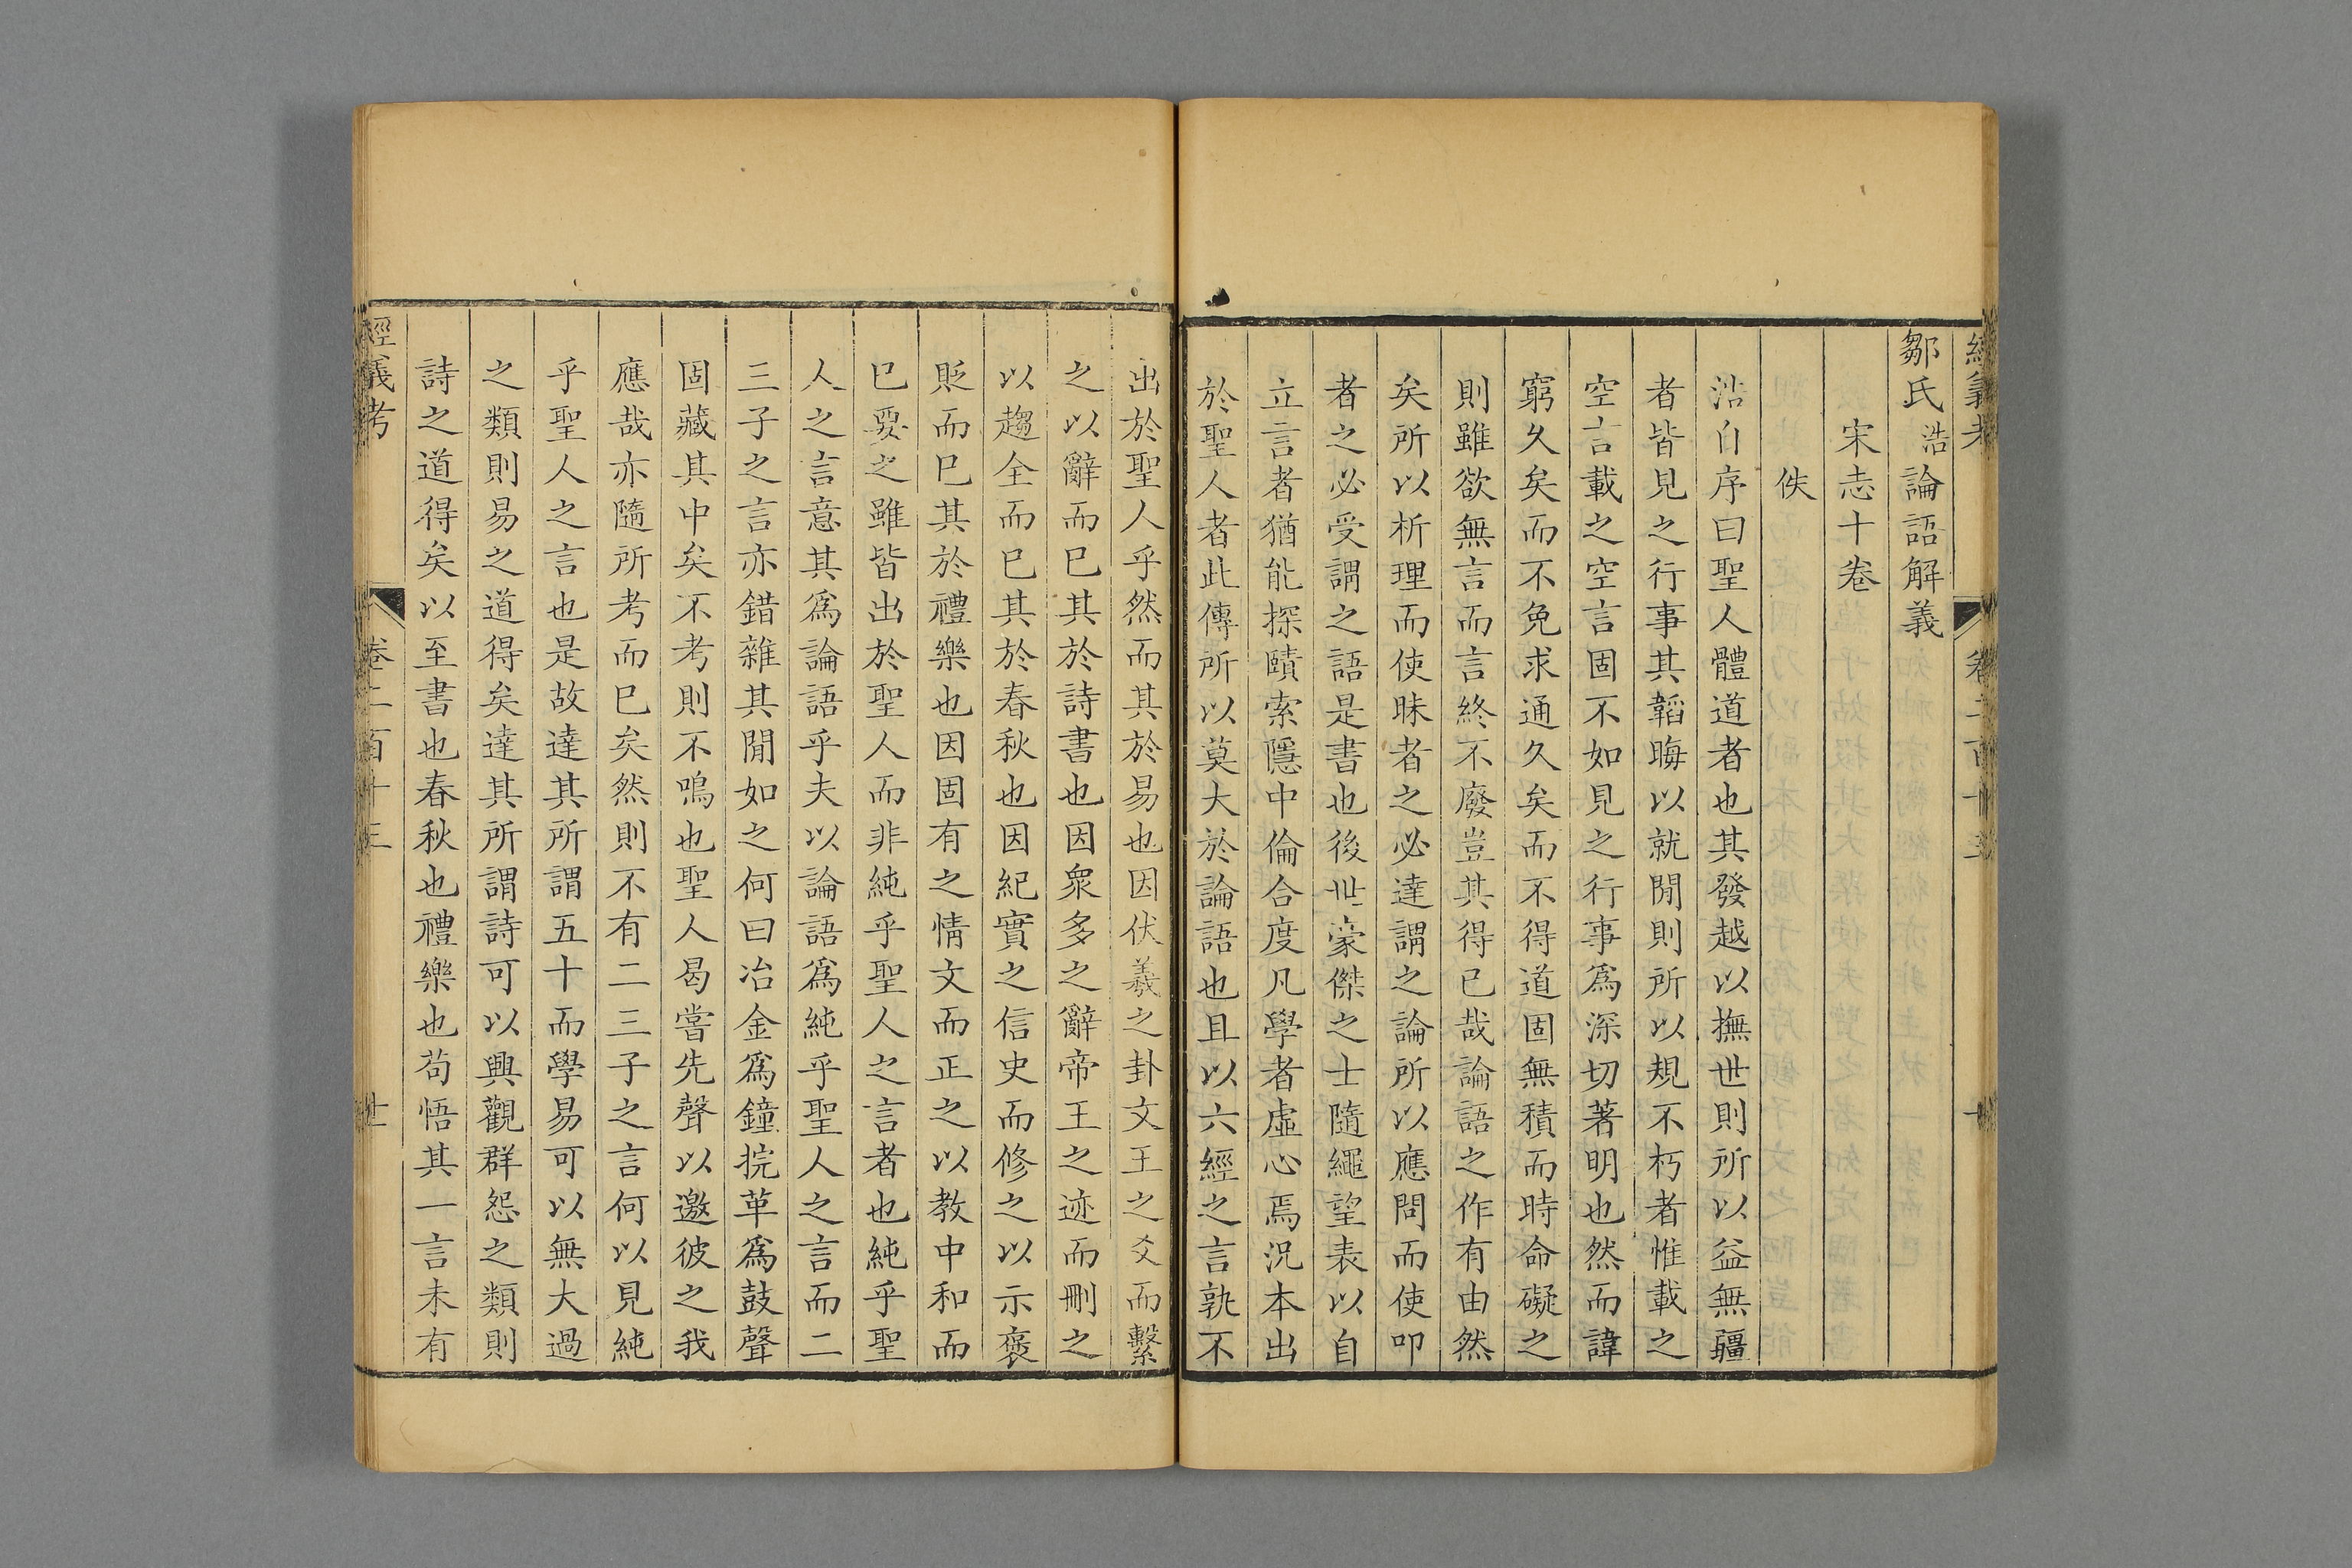 經義考 卷二百十三 十
鄒氏浩論語解義
宋志十卷
佚
浩自序曰聖人體道者也其發越以撫世則所以益無疆
者皆見之行事其韜晦以就閒則所以規不朽者惟載之
空言載之空言固不如見之行事爲深切著明也然而諱
窮久矣而不免求通久矣而不得道固無積而時命礙之
則雖欲無言而言終不廢豈其得已哉論語之作有由然
矣所以析理而使昧者之必達謂之論所以應問而使叩
者之必受謂之語是書也後世豪傑之士隨繩望表以自
立言者猶能探賾索隱中倫合度凡學者虛心焉況本出
於聖人者此傳所以莫大於論語也且以六經之言孰不
出於聖人乎然而其於易也因伏羲之卦文王之爻而繫
之以辭而巳其於詩書也因衆多之辭帝王之迹而刪之
以趨全而巳其於春秋也因紀實之信史而修之以示褒
貶而巳其於禮樂也因固有之情文而正之以教中和而
巳要之雖皆出於聖人而非純乎聖人之言者也純乎聖
人之言意其爲論語乎夫以論語爲純乎聖人之言而二
三子之言亦錯雜其閒如之何曰冶金爲鐘捖革爲鼓聲
固藏其中矣不考則不鳴也聖人曷嘗先聲以邀彼之我
應哉亦隨所考而巳矣然則不有二三子之言何以見純
乎聖人之言也是故達其所謂五十而學易可以無大過
之類則易之道得矣達其所謂詩可以興觀群怨之類則
詩之道得矣以至書也春秋也禮樂也苟悟其一言未有
經義考 卷二百十三 十一